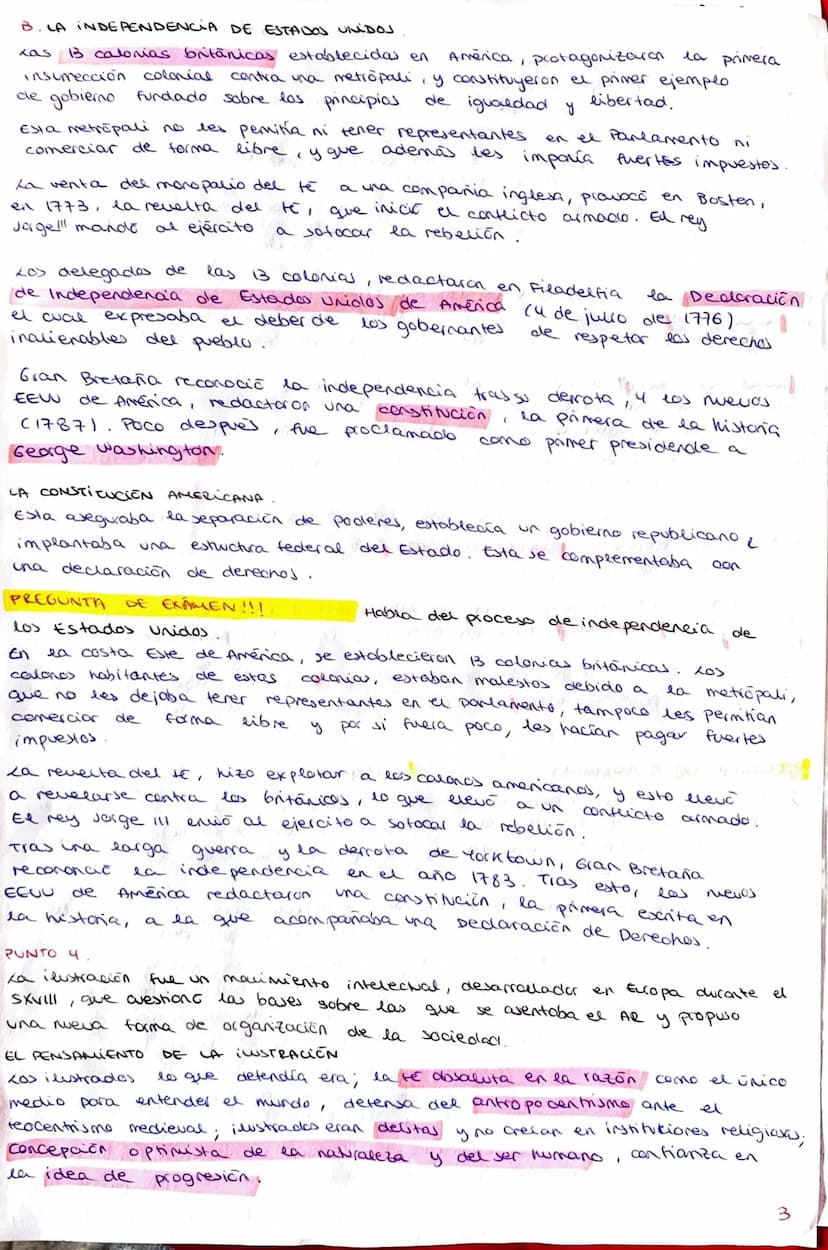 B. LA INDEPENDENCIA DE ESTADOS UNIDOS
Las 13 colonias británicas establecidas en América, protagonizaron la primera
insurrección colonial contra una metrópoli, y constituyeron el primer ejemplo
de gobierno fundado sobre los principios de igualdad y libertad.
Esta metrópoli no les pemitía ni tener representantes en el Parlamento ni
comerciar de forma libre, y que además les imponía fuertes impuestos.
La venta del monopolio del té a una compañía inglesa, provocó en Boston,
en 1773, la revuelta del té, que inició el conflicto armado. El rey
Jorge III mandó al ejército a sofocar la rebelión.
Los delegados de las 13 colonias, redactaron en Filadelfia la Declaración
de Independencia de Estados Unidos de América (4 de julio de 1776)
el cual expresaba el deber de los gobernantes de respetar los derechos
inalienables del pueblo.
Gran Bretaña reconoció la independencia tras su derrota, y los nuevos
EEUU de América, redactaron una constitución, la primera de la historia
(1787). Poco después, fue proclamado como primer presidende a
George Washington.
LA CONSTITUCIÓN AMERICANA.
Esta aseguraba la separación de poderes, establecía un gobierno republicano e
implantaba una estuctura federal del Estado. Esta se complementaba con
una declaración de derechos.
PREGUNTA DE EXÁMEN!!! Habla del proceso de independencia de
los Estados Unidos.
En la costa Este de América, se establecieron 13 colonias británicas. Los
colonos habitantes de estas colonias, estaban molestos debido a la metrópoli,
que no les dejaba tener representantes en el parlamento, tampoco les permitían
comerciar de forma libre y por si fuera poco, les hacían pagar fuertes
impuestos.
La revuelta del té, hizo explotar a los colonos americanos, y esto llevó
a revelarse contra los británicos, lo que llevó a un conflicto armado.
El rey Jorge III envió al ejercito a sofocar la rebelión.
Tras una larga guerra y la derrota de Yorktown, Gran Bretaña
recononció la independencia en el año 1783. Tras esto, los nuevos
EEUU de América redactaron una constitución, la primera escrita en
la historia, a la que acompañaba una Declaración de Derechos.
PUNTO 4.
La ilustración fue un movimiento intelectual, desarrollador en Europa durante el
SXVIII, que cuestionó las bases sobre las que se asentaba el AR y propuso
una nueva forma de organización de la sociedad.
EL PENSAMIENTO DE LA ILUSTRACIÓN
Los ilustrados lo que defendía era; la fé absoluta en la razón como el único
medio para entender el mundo, defensa del antropocentrismo ante el
teocentrismo medieval; ilustrados eran deístas y no creían en instituciones religiosas;
concepción optimista de la naturaleza y del ser humano, confianza en
la idea de progresión.
3